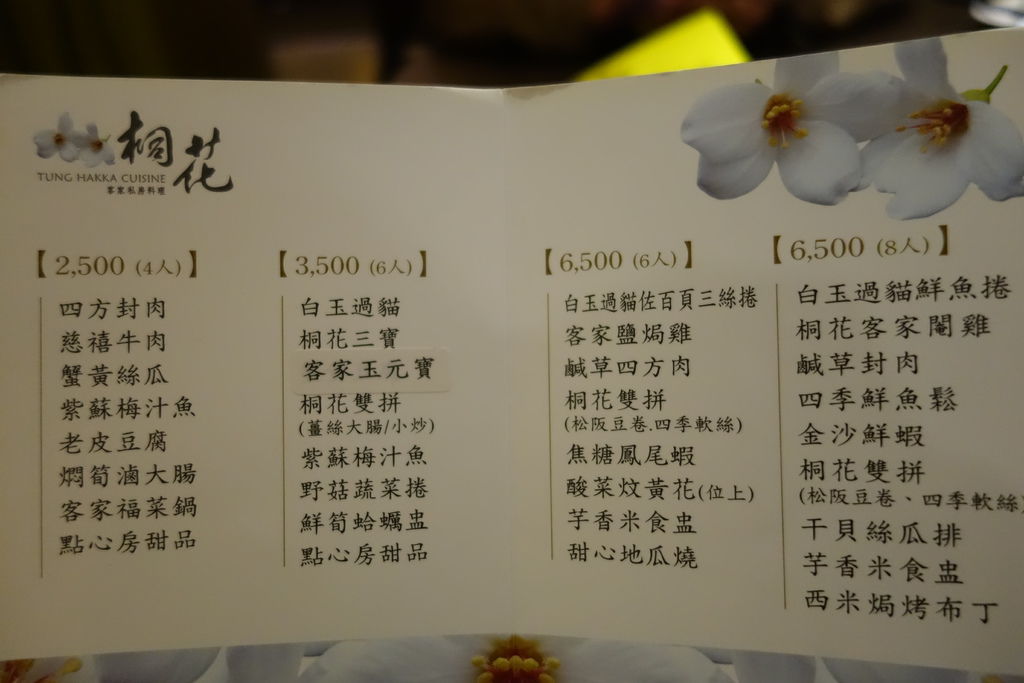 桐花
TUNG HAKKA CUISINE
客家私房料理
【2,500 (4人)】
四方封肉
慈禧牛肉
蟹黃絲瓜
紫蘇梅汁魚
老皮豆腐
燜筍滷大腸
客家福菜鍋
點心房甜品
【3,500 (6人)】
白玉過貓
桐花三寶
客家玉元寶
桐花雙拼
(薑絲大腸/小炒)
紫蘇梅汁魚
野菇蔬菜捲
鮮筍蛤蠣盅
點心房甜品
【6,500 (6人)】
白玉過貓佐百頁三絲捲
客家鹽焗雞
鹹草四方肉
桐花雙拼
(松阪豆卷.四季軟絲)
焦糖鳳尾蝦
酸菜炆黃花(位上)
芋香米食盅
甜心地瓜燒
【6,500 (8人)】
白玉過貓鮮魚捲
桐花客家閹雞
鹹草封肉
四季鮮魚鬆
金沙鮮蝦
桐花雙拼
(松阪豆卷、四季軟絲)
干貝絲瓜排
芋香米食盅
西米焗烤布丁